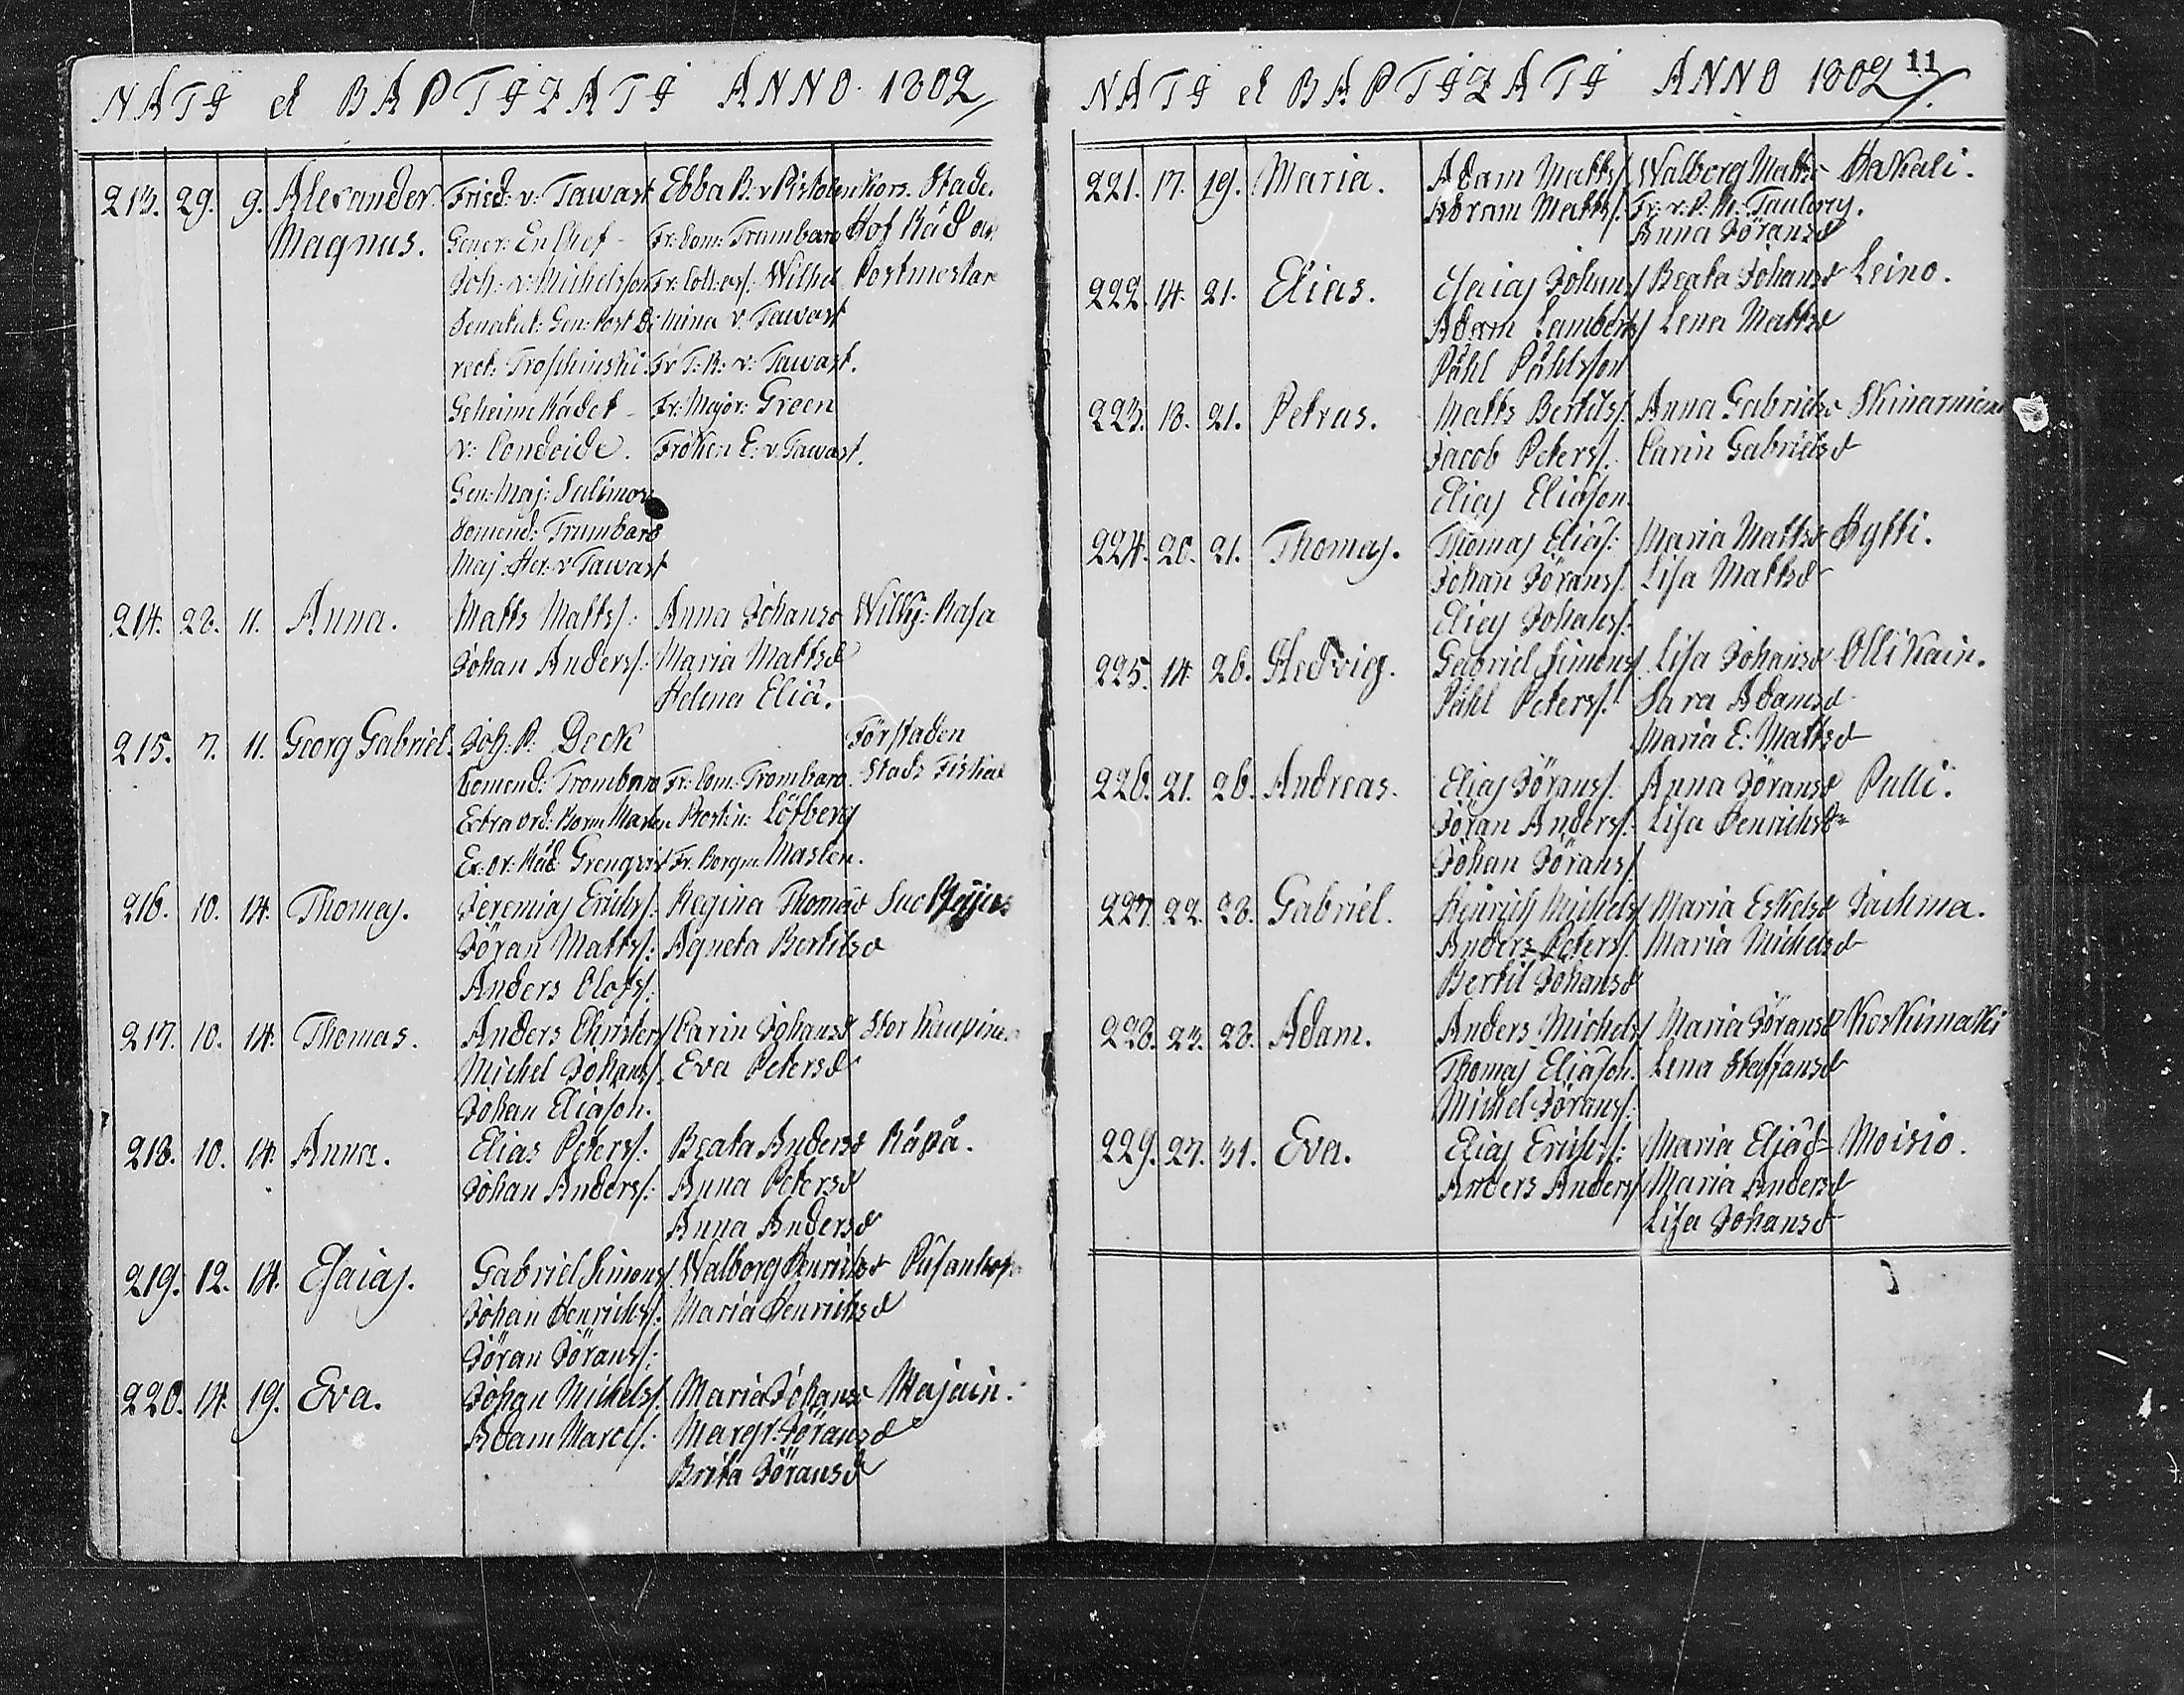 NATI et BAPTIZATI ANNO 1802
213. 29. 9. Alexander Fried: v: Tawast Ebba B. v Pistolen Kors. Stade.
Magnus. Gener: En Chef - Fr: Com: Trumbara Hof Råd och
Joh: v: Michelsson Fr: Coll: ass: Wilhel Postmestar
Senatut: Gen: Post Di mina v. Tawast
rect: Troschinski. Fr T: R: v: Tawast.
Geheime Rådet - Fr: Major: Green
v: Condoide. Fröken E: v. Tawast.
Gen: Maj: Salimow
Comend: Trumbara
Maj: Her: v Tawast
214. 28. 11. Anna. Matts Matts/: Anna Johansd Willij: Rasa
Johan Anders/: Maria Mattsd
Helena Eliä.
215. 7. 11. Georg Gabriel. Joh: P: Deck Förstaden
Comend: Trombara Fr: Com: Trombara. Stads Fiskal
Extra ord: Borm Maslen Prostin: Löfberg
Ex: or: Råd: Grenqvist Fr. Borgm: Maslen.
216. 10. 14. Thomas. Jeremias Erichs/: Regina Thomæd
Jöran Matts/: Agneta Bertilsd
Anders Olofs/:
217. 10. 14. Thomas. Anders Christers/ Carin Johansd Stor Kaupine
Michel Johans/. Eva Petersd
Johan Eliason.
218. 10. 14. Anna. Elias Peters/: Beata Andersd Räpä.
Johan Anders/: Anna Petersd
Anna Andersd
219. 12. 14. Esaias. Gabriel Simons/. Walborg Henrichsd
Johan Henrichs/: Maria Henrichsd
Jöran Jörans/:
220. 14. 19. Eva. Johan Michels/. Maria Johansd Majain.
Adam Marcs/: Margr: Jöransd
Brita Jöransd
NATI et BAPTIZATI ANNO 1802/. 11
221. 17. 19. Maria. Adam Matts/ Walborg Mattsd Hakali.
Abram Matts/. Fr: v. P. M. Tauberg.
Anna Jöransd
222. 14. 21. Elias. Esaias Johans/ Beata Johansd Leino.
Adam Lamberts/ Lena Mattsd
Påhl Påhlsson
223. 18. 21. Petrus. Matts Bertils/. Anna Gabrielsd Skinarniemi
Jacob Peters/. Carin Gabrielsd
Elias Eliason.
224. 20. 21. Thomas. Thomas Elias/: Maria Mattsd Hytti.
Johan Jörans/. Lisa Mattsd
Elias Johans/:
225. 14 26. Hedvig. Gabriel Simons/. Lisa Johansd Ollikain.
Påhl Peters/. Sara Adamsd
Maria E: Mattsd
226. 21. 26. Andreas. Elias Jörans/: Anna Jöransd Pulli.
Jöran Anders/: Lisa Henrichsd
Johan Jörans/
227. 22. 28. Gabriel. Henrich Michels/ Maria Eskelsd Jackma.
Anders Peters/. Maria Michelsd
Bertil Johansd
228. 23. 28. Adam. Anders Michels/ Maria Jöransd Koskimaki
Thomas Eliason. Lena Staffansd
Michel Jörans/:
229. 27. 31. Eva. Elias Erichs/: Maria Eliäd Moisio.
Anders Anders/ Maria Andersd
Lisa Johansd